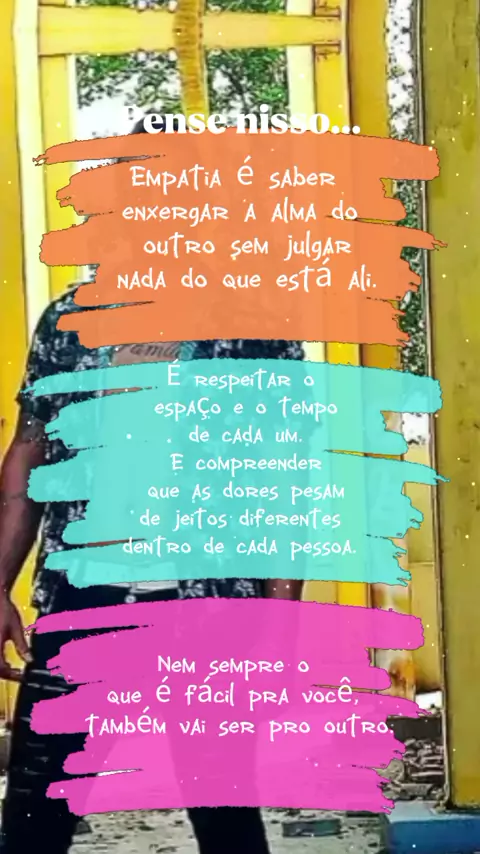 Pense nisso...
Empatia é saber
enxergar a alma do
outro sem julgar
nada do que está ali.
É respeitar o
espaço e o tempo
de cada um.
E compreender
que as dores pesam
de jeitos diferentes
dentro de cada pessoa.
Nem sempre o
que é fácil pra você,
também vai ser pro outro.